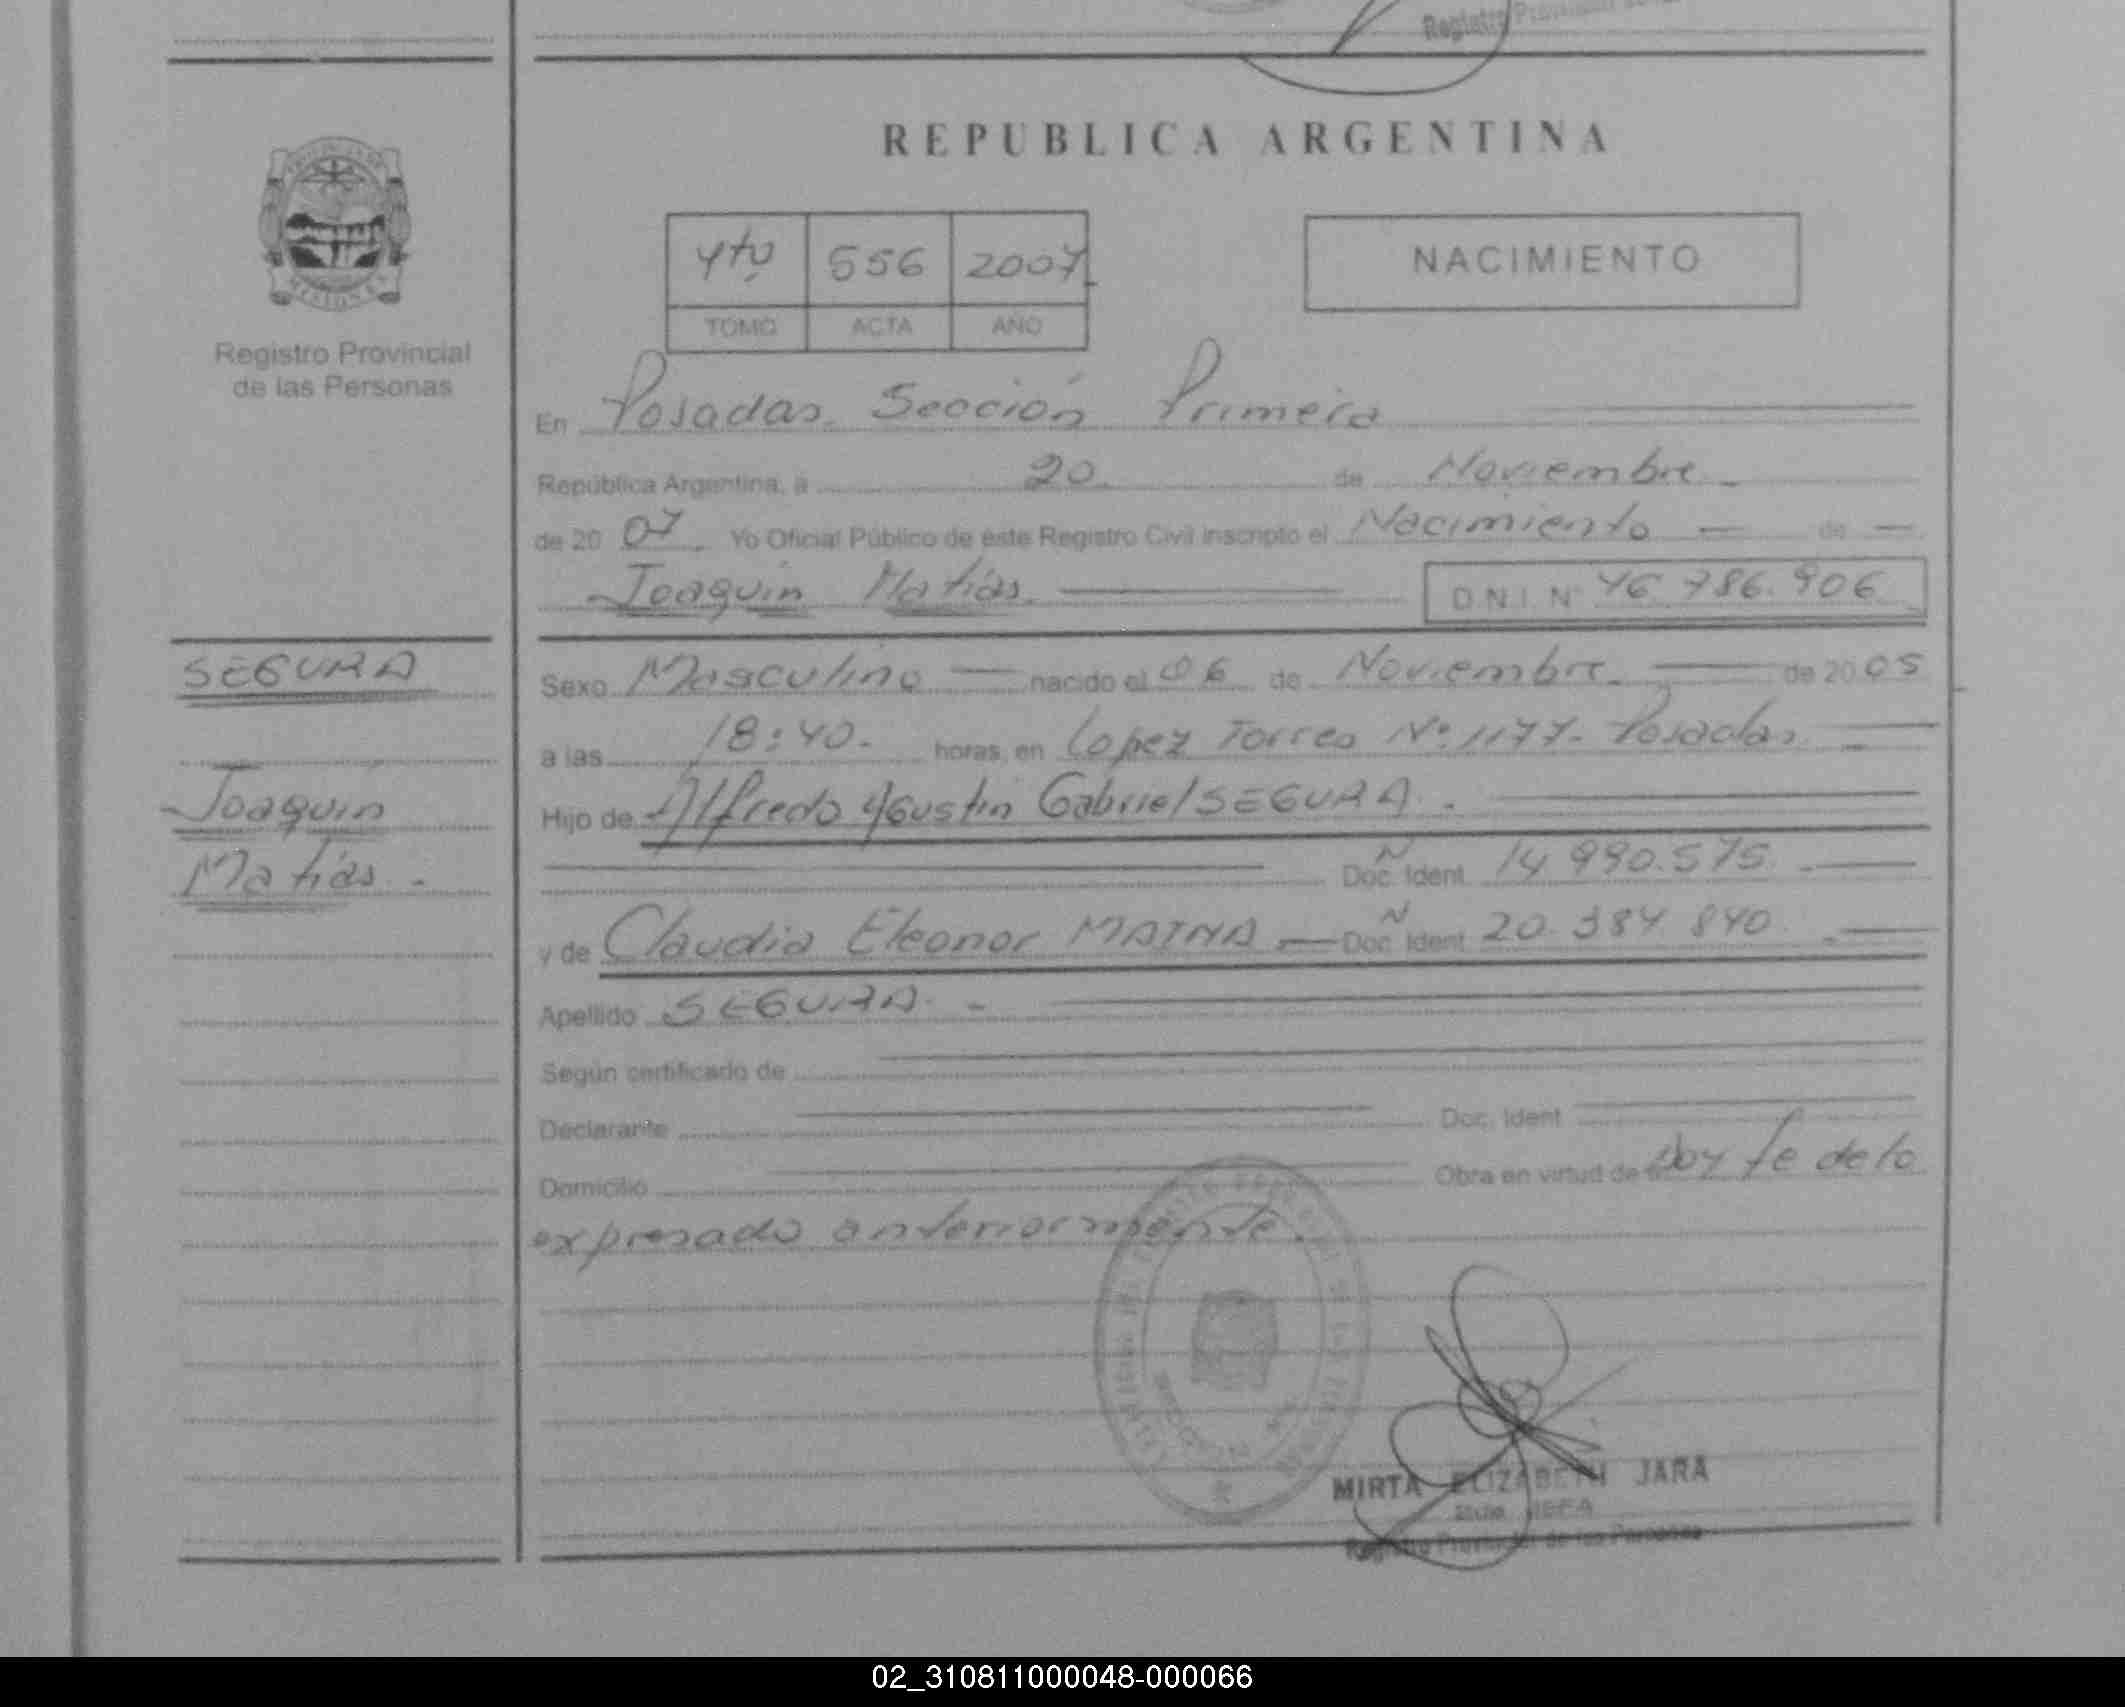 Registro Provincial
REPUBLICA ARGENTINA
PROVINCIA DE
MISIONES
Registro Provincial
de las Personas
4to 556 2007
TOMO ACTA AÑO
NACIMIENTO
En Posadas. Sección Primera
República Argentina, a 20. de Noviembre
de 20 07. Yo Oficial Público de este Registro Civil inscripto el Nacimiento — de —
Joaquín Matías. D.N.I. N° 46 786.906
SEGURA
Joaquín
Matías.-
Sexo Masculino — nacido el 06 de Noviembre. — de 20 05
a las 18:40. horas, en Lopez Torres N°: 1177- Posadas —
Hijo de Alfredo Agustin Gabriel SEGURA.
Doc. Ident 14 990.575. -
y de Claudia Eleonor — Doc. Ident 20.384 840. -
Apellido SEGURA. -
Según certificado de
Declarante Doc. Ident
Domicilio Obra en virtud de Doy fe de lo
expresado anteriormente.
MIRTA ELIZABETH JARA
JEFA
Registro Provincial de las Personas
02_310811000048-000066